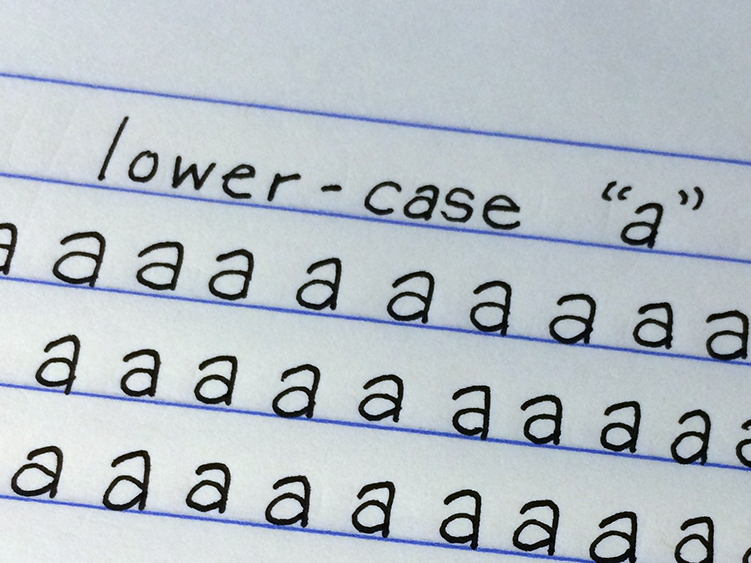 lower-case “a”
a a a a a a a a a a
a a a a a a a a a a
a a a a a a a a a